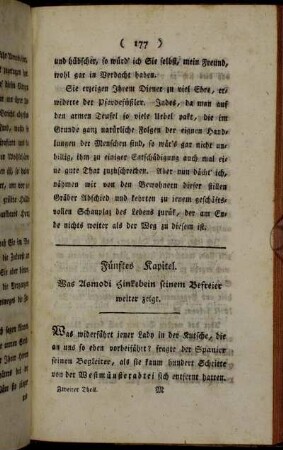 ( 177 )
und hübscher, so würd' ich Sie selbst, mein Freund,
wohl gar in Verdacht haben.
Sie erzeigen Ihrem Diener zu viel Ehre, er-
widerte der Pferdefüßler. Indes, da man auf
den armen Teufel so viele Uebel pakt, die im
Grunde ganz natürliche Folgen der eignen Hand-
lungen der Menschen sind, so wär's gar nicht un-
billig, ihm zu einiger Entschädigung auch mal ei-
ne gute That zuzuschreiben. Aber nun dächt' ich,
nähmen wir von den Bewohnern dieser stillen
Gräber Abschied und kehrten zu jenem geschäfts-
vollen Schauplaz des Lebens zurük, der am En-
de nichts weiter als der Weg zu diesem ist.
Fünftes Kapitel.
Was Asmodi Hinkebein seinem Befreier
weiter zeigt.
Was widerfährt jener Lady in der Kutsche, die
an uns so eben vorbeifährt? fragte der Spanier
seinen Begleiter, als sie kaum hundert Schritte
von der Westmünsterabtei sich entfernt hatten.
Zweiter Theil. M